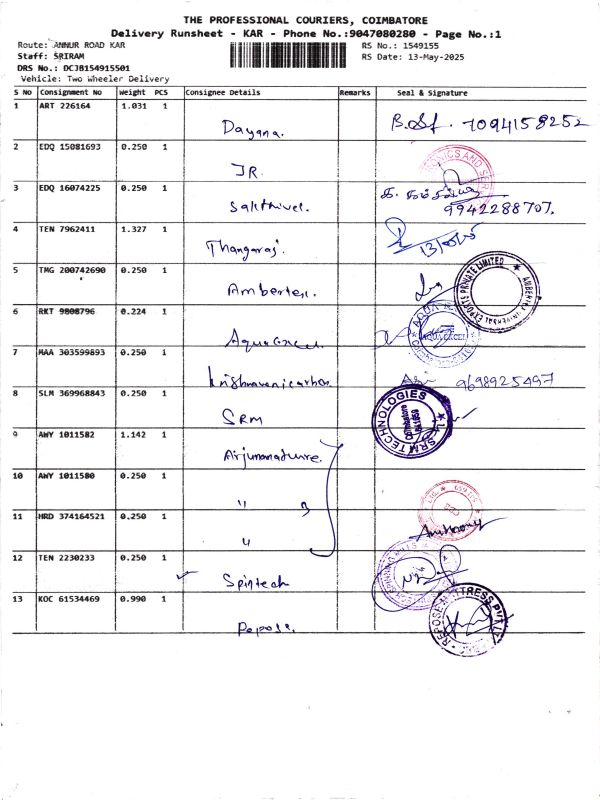 THE PROFESSIONAL COURIERS, COIMBATORE
Delivery Runsheet - KAR - Phone No.:9047080280 - Page No.:1
Route: ANNUR ROAD KAR RS No.: 1549155
Staff: SRIRAM RS Date: 13-May-2025
DRS No.: DCJB154915501
Vehicle: Two Wheeler Delivery
S No Consignment No Weight PCS Consignee Details Remarks Seal & Signature
1 ART 226164 1.031 1
Dayana. 7094158252
2 EDQ 15081693 0.250 1
JR.
3 EDQ 16074225 0.250 1
Sakthivel. 9942288707.
4 TEN 7962411 1.327 1
Thangaraj.
5 TMG 200742690 0.250 1
Ambertex.
6 RKT 9808796 0.224 1
Aquaexcel AQUAEXCEL
7 MAA 303599893 0.250 1
9698925497
8 SLM 369968843 0.250 1
SRM SRM TECHNOLOGIES Coimbatore
9 AWY 1011582 1.142 1
10 AWY 1011580 0.250 1
"
11 HRD 374164521 0.250 1
"
12 TEN 2230233 0.250 1
Spintech
13 KOC 61534469 0.990 1
Repose. REPOSE MATTRESS PVT LTD